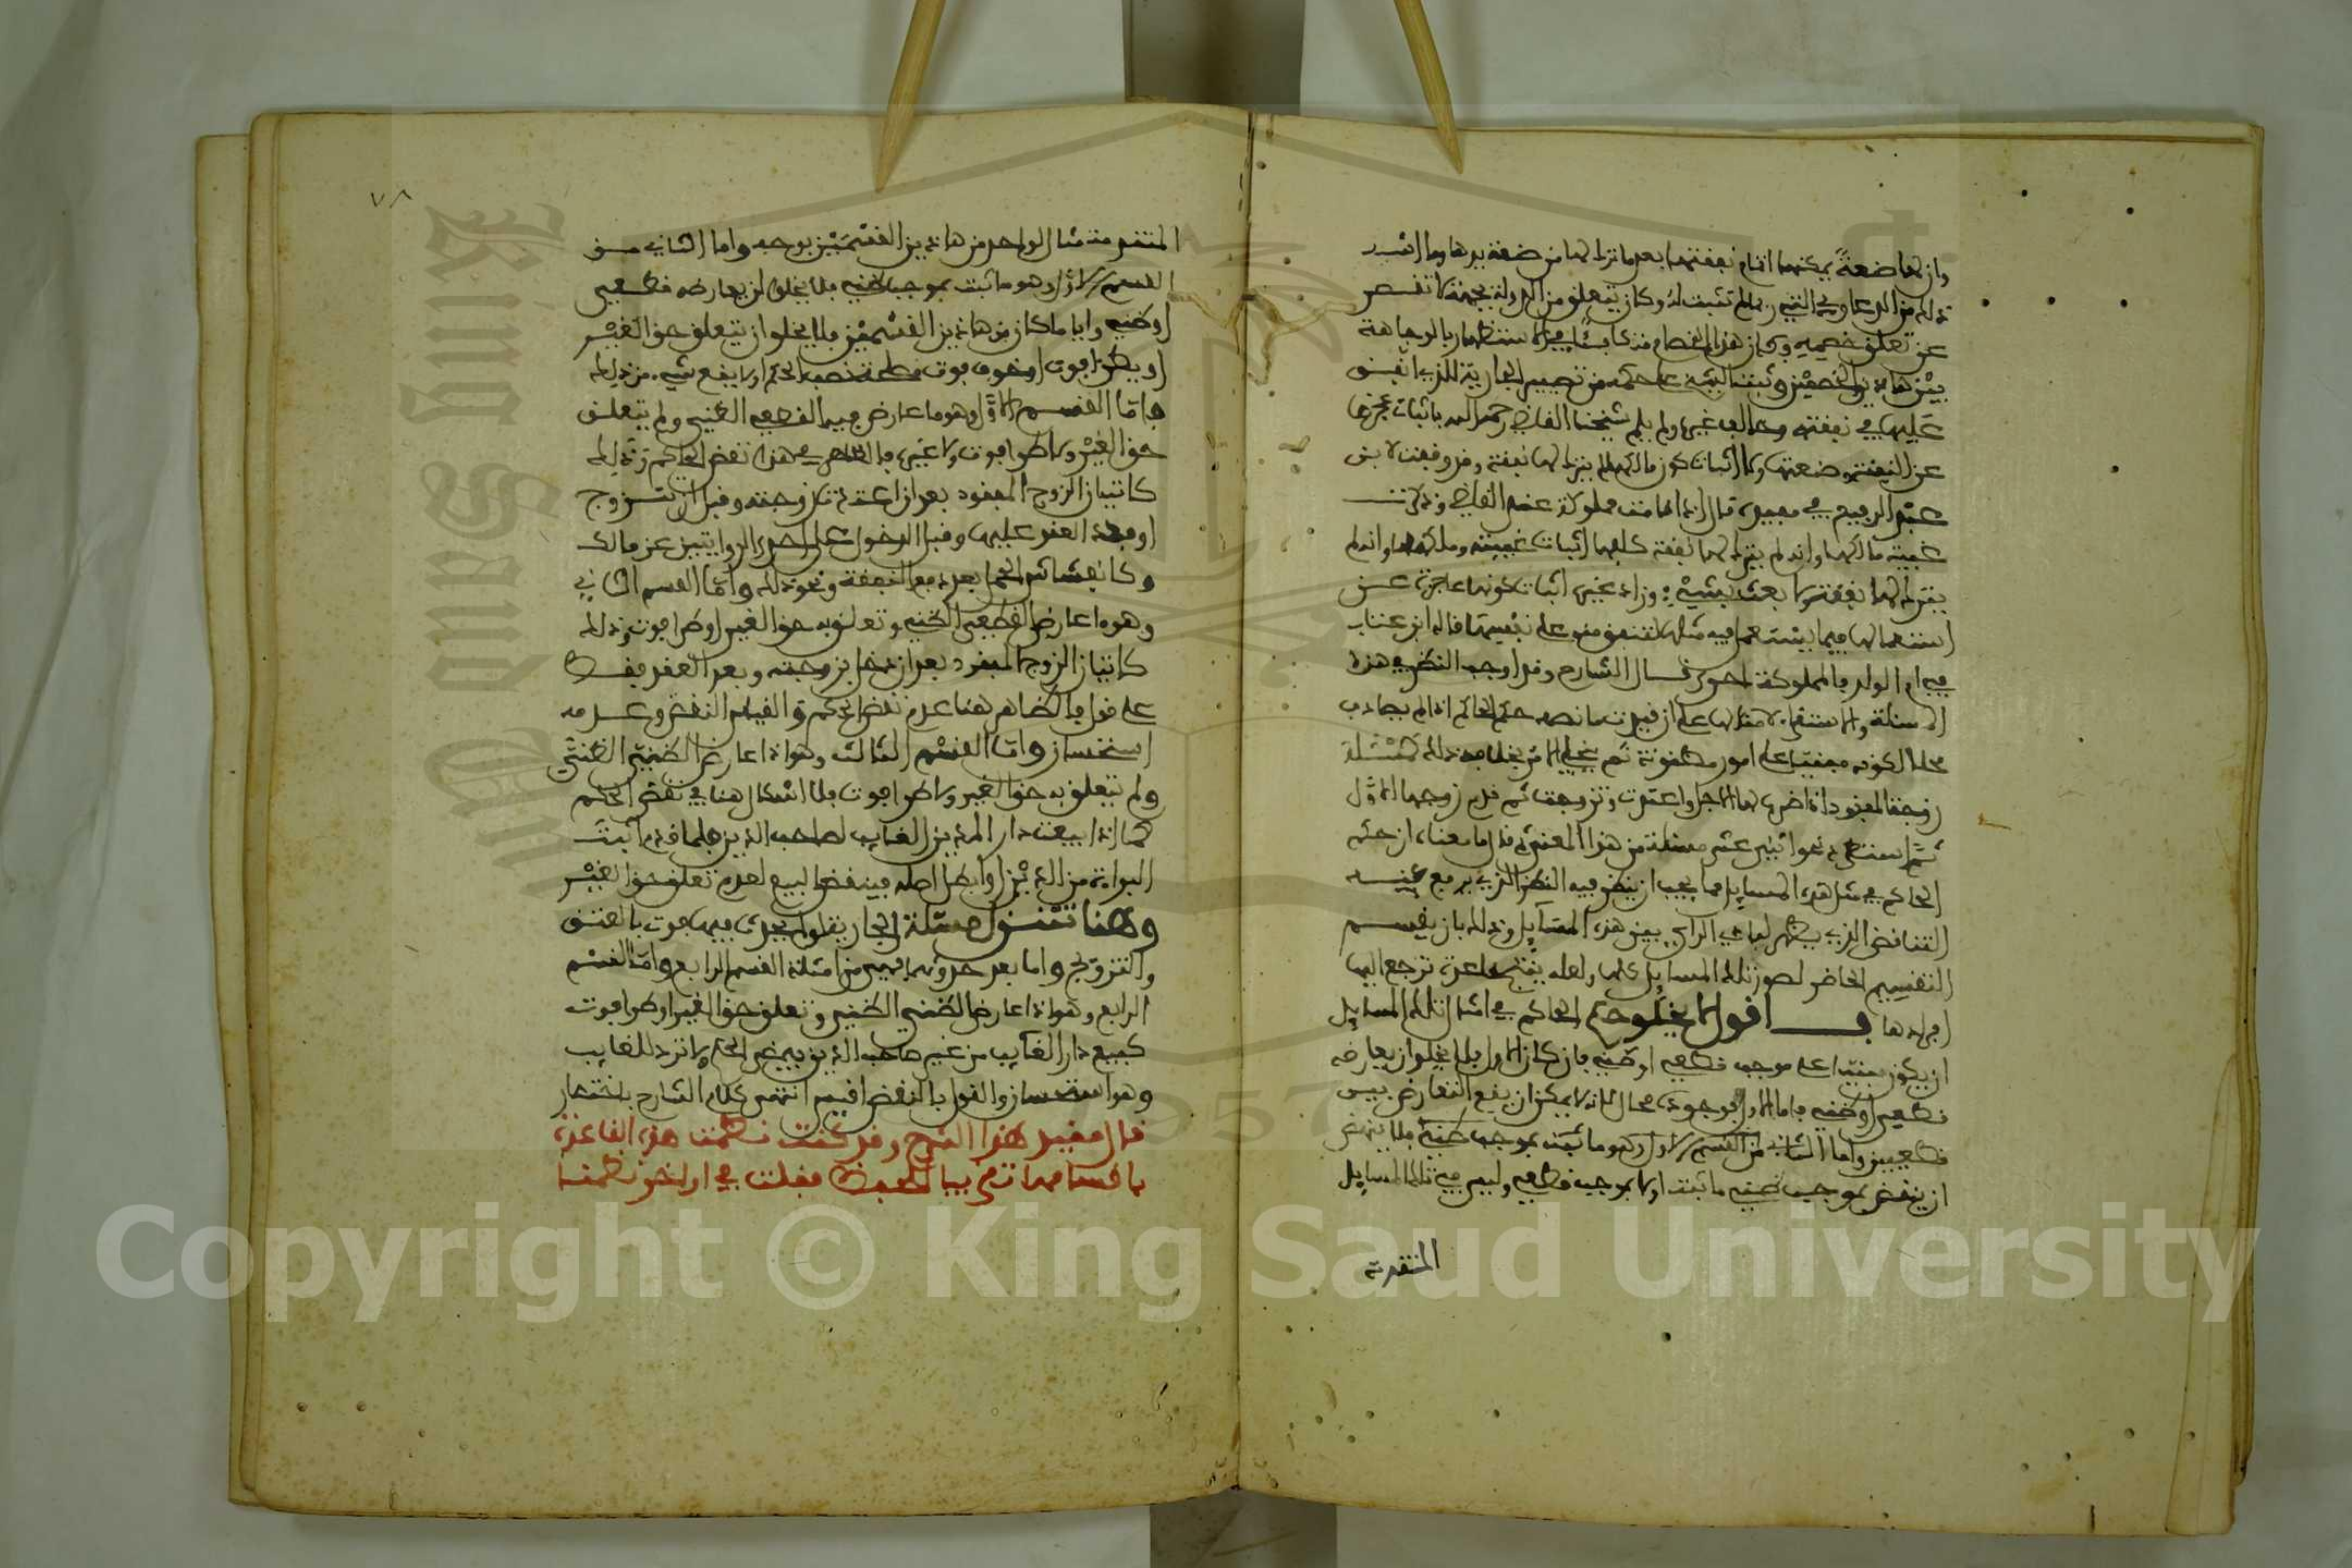 وان لها ضعة يمكنها اتمام نفقتها بعد ما ترك لها من ضعة يدها وما اشبه
ذلك من الدعاوى التي ربما لم تثبت له وكان يتعلق من الدولة بجهة لا تقصر
عن تعلق خصمه وكان هذا الخصام مذكا بينا في الاستظهار بالوجاهة
بين هاذين الخصمين وثبت البينة على حكمه من تصيير الجارية للذي انفق
عليها في نفقته وخالف غيره ولم يلم شيخنا القاضي رحمه الله باثبات عجزها
عن النفقة وضعتها ولا اثبات كون مالكها لم يترك لها نفقة وقد وقعت لابن
عبد الرفيع في معينه قال اذا قامت مملوكة عند القاضي وذكرت
غيبة مالكها وانه لم يترك لها نفقة كلفها اثبات غيبته وملكه لها وانه لم
يترك لها نفقة ولا بعث بشيء وزاد غيره اثبات كونها عاجزة عن
استعمالها فيما يستعمل فيه مثلها لتنفق منه على نفسها قاله ابن عتاب
في ام الولد فالمملوكة احرى قال الشارح وقد اوجب النظر في هذه
الاسئلة والاستقراء لامثالها على ان قيدت ما نصه حكم الحاكم اذا لم يصادف
محلا لكونه مبنيا على امور مظنونة ثم ينجلي الامر بخلاف ذلك كمسئلة
زوجة المفقود اذا ضرب لها الاجل واعتدت وتزوجت ثم قدم زوجها الاول
ثم استظهر نحو اثني عشر مسئلة من هذا المعنى ثم قال ما معناه ان حكم
الحاكم في مثل هذه المسايل مما يجب ان ينظر فيه النظر الذي يرفع عنه
التناقض الذي يظهر لبادي الراي بين هذه المسايل وذلك بان يقسم
التقسيم الحاضر لصور تلك المسايل كلها ولعله ينتج قاعدة ترجع اليها
افرادها فـــاقول لا يخلو حكم الحاكم في امثال تلك المسايل
ان يكون مبنيا على موجب قطعي او ظني فان كان الاول فلا يخلو ان يعارضه
قطعي او ظني فاما الاول فوجوده محال لانه لا يمكن ان يقع التعارض بين
قطعيين واما الثاني من القسم الاول وهو ما ثبت بموجب ظني فلا ينهض
ان ينقض بموجب ظني ما ثبت اولا بموجب قطعي وليس في تلك المسايل
المتقدمة
٧٨
المتقدمة مثال الواحد من هاذين القسمين بوجه واما الثاني من
القسم الاول وهو ما ثبت بموجب ظني فلا يخلو ان يعارضه قطعي
او ظني وايا ما كان من هاذين القسمين فلا يخلو ان يتعلق حق الغير
او يطرا فوت او خوف فوت مصلحة نصب الحكم او لا يقع شيء من ذلك
فاما القسم الاول وهو ما عارض فيه القطعي الظني ولم يتعلق
حق الغير ولا طرا فوت ولا غيره فالظاهر في هذا نقض الحكم وذلك
كاتيان الزوج المفقود بعد ان اعتدت زوجته وقبل ان تتزوج
او بعد العقد عليها وقبل الدخول على احدى الروايتين عن مالك
وكانفشاش الحمل بعد دفع النفقة ونحو ذلك واما القسم الثاني
وهو ما عارض القطعي الظني وتعلق به حق الغير او طرا فوت وذلك
كاتيان الزوج المفقود بعد ان دخل بزوجته وبعد العقد فقط
على قول فالظاهر هنا عدم نقض الحكم والقياس النقض وعدمه
استحسان واما القسم الثالث وهو اذا عارض الظني الظني
ولم يتعلق به حق الغير ولا طرا فوت فلا اشكال هنا في نقض الحكم
كما اذا بيعت دار المدين الغايب لصاحب الدين فلما قدم اثبت
البراءة من الدين او ابطل اصله فينقض البيع لعدم تعلق حق الغير
وهنا تتنزل مسئلة الجارية قبل ان يحدث فيها فوت بالعتق
والتزويج واما بعد حدوثهما فهي من امثلة القسم الرابع واما القسم
الرابع وهو اذا عارض الظني الظني وتعلق حق الغير او طرا فوت
كبيع دار الغايب من غير صاحب الدين فيمضي الحكم ولا ترد للغايب
وهو استحسان والقول بالنقض اقيس انتهى كلام الشارح باختصار
قال مقيد هذا الشرح وقد كنت نظمت هذه القاعدة
باقسامها تتميما للفائدة فقلت في اواخر نظمنا